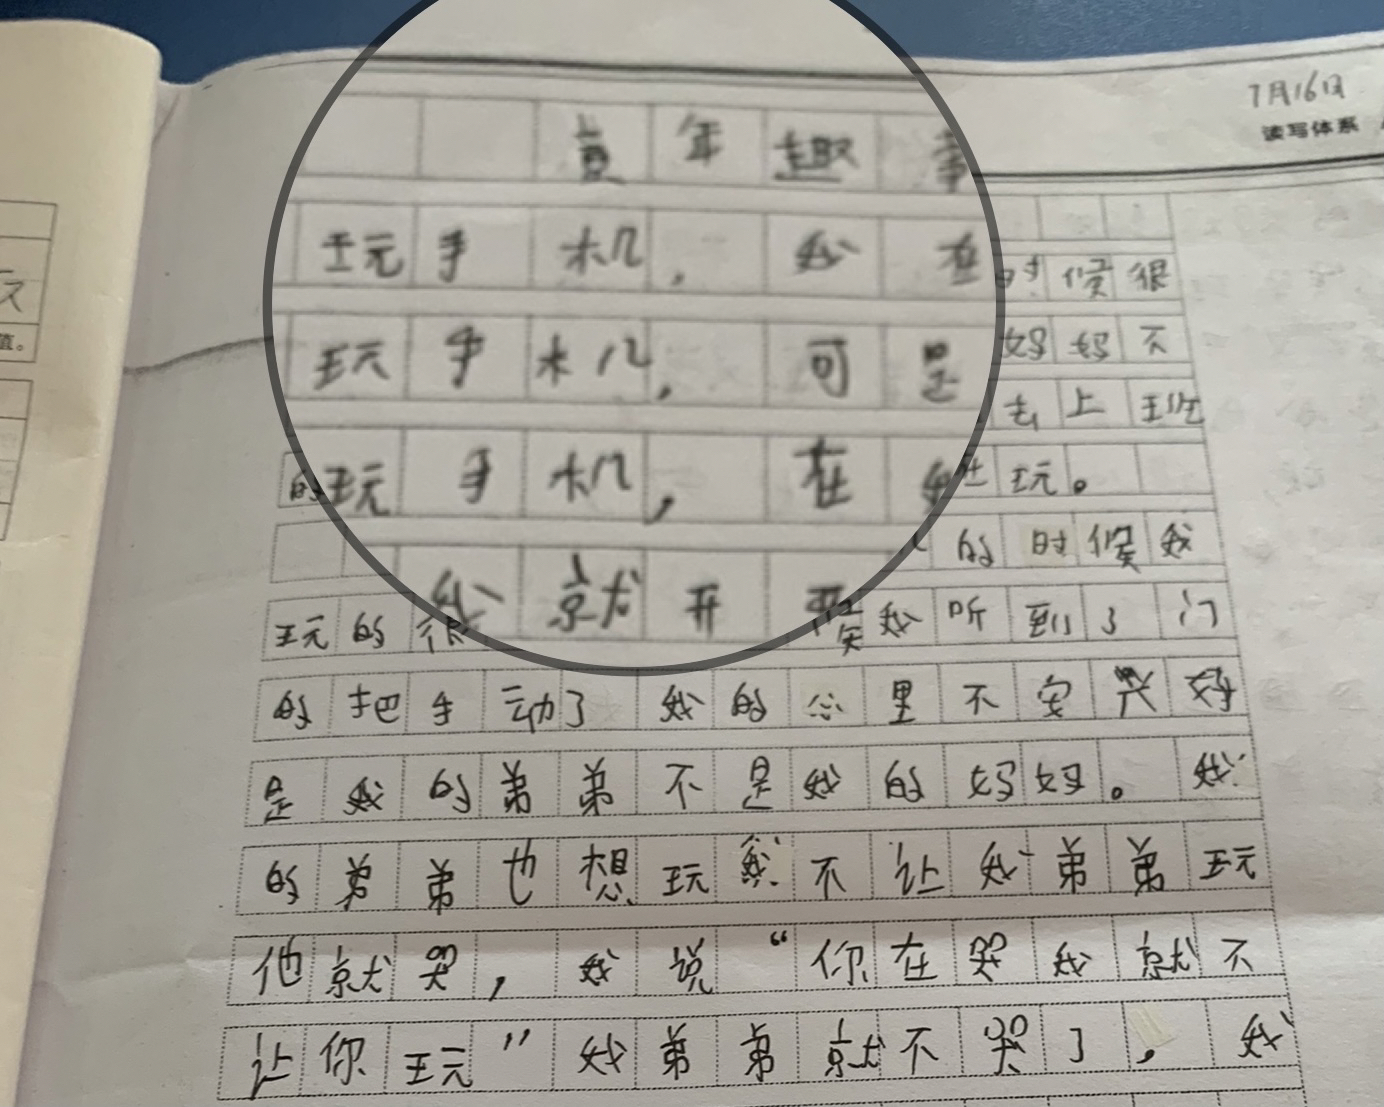 7月16日
读写体系
值。
童年趣事
玩手机，我在时候很
玩手机，可是妈妈不
玩手机，在去上班
的我就开玩。
的时候我
玩的很我听到了门
的把手动了我的心里不安兴好
是我的弟弟不是我的妈妈。我
的弟弟也想玩我不让我弟弟玩
他就哭，我说“你在哭我就不
让你玩”我弟弟就不哭了，我